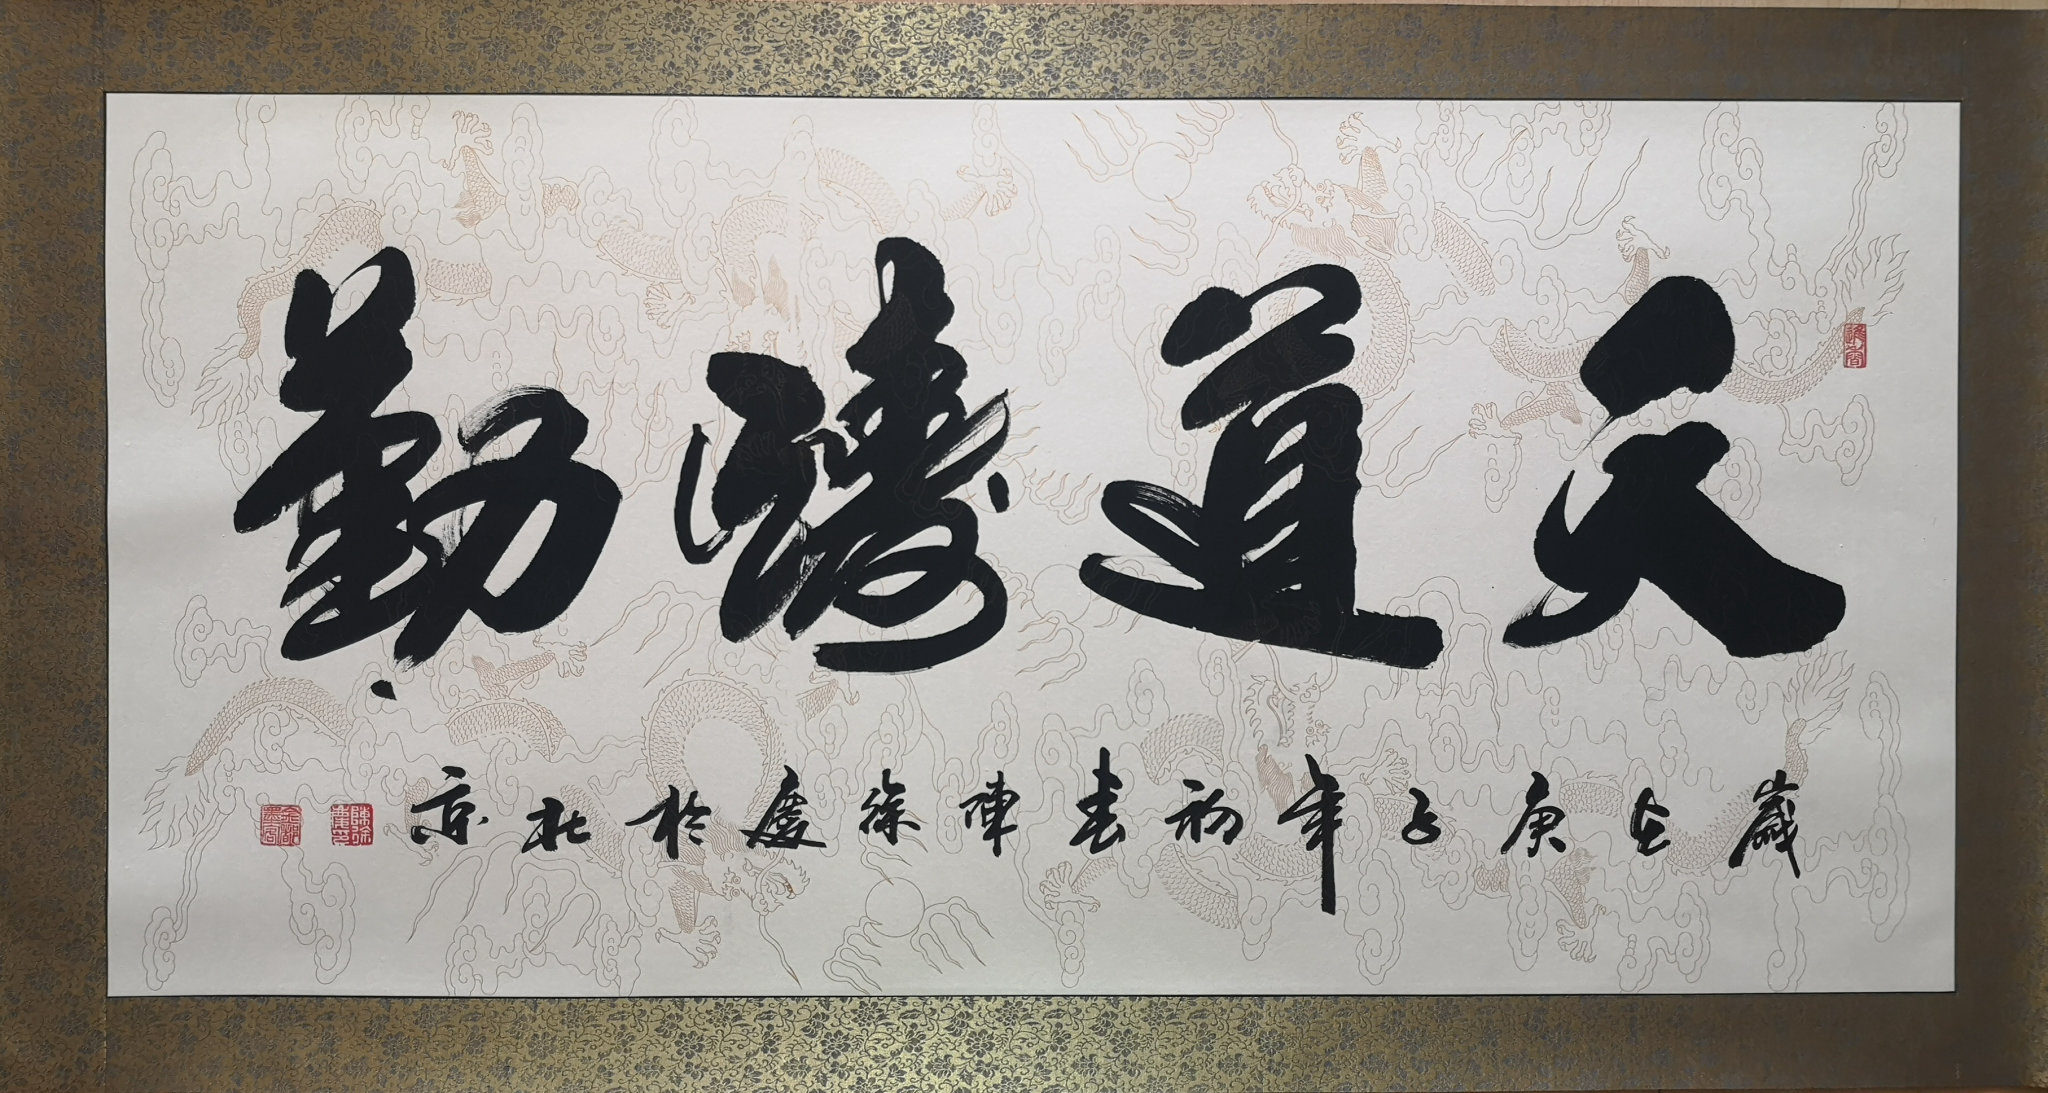 天道酬勤
歲在庚子年初春陳徐慶於北京
陳徐慶印